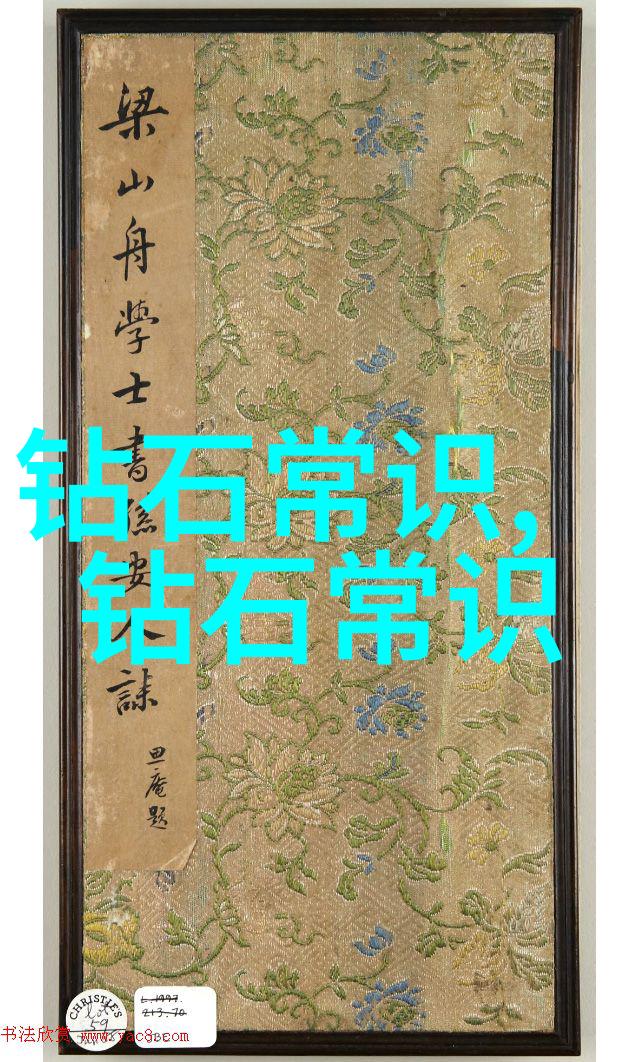 梁山舟學士書孫安人誄
庵題
钻石常识,
钻石常识
CHRISTIE'S
Lot
59
L.1997.
213.70
书法欣赏 www.yac8.com